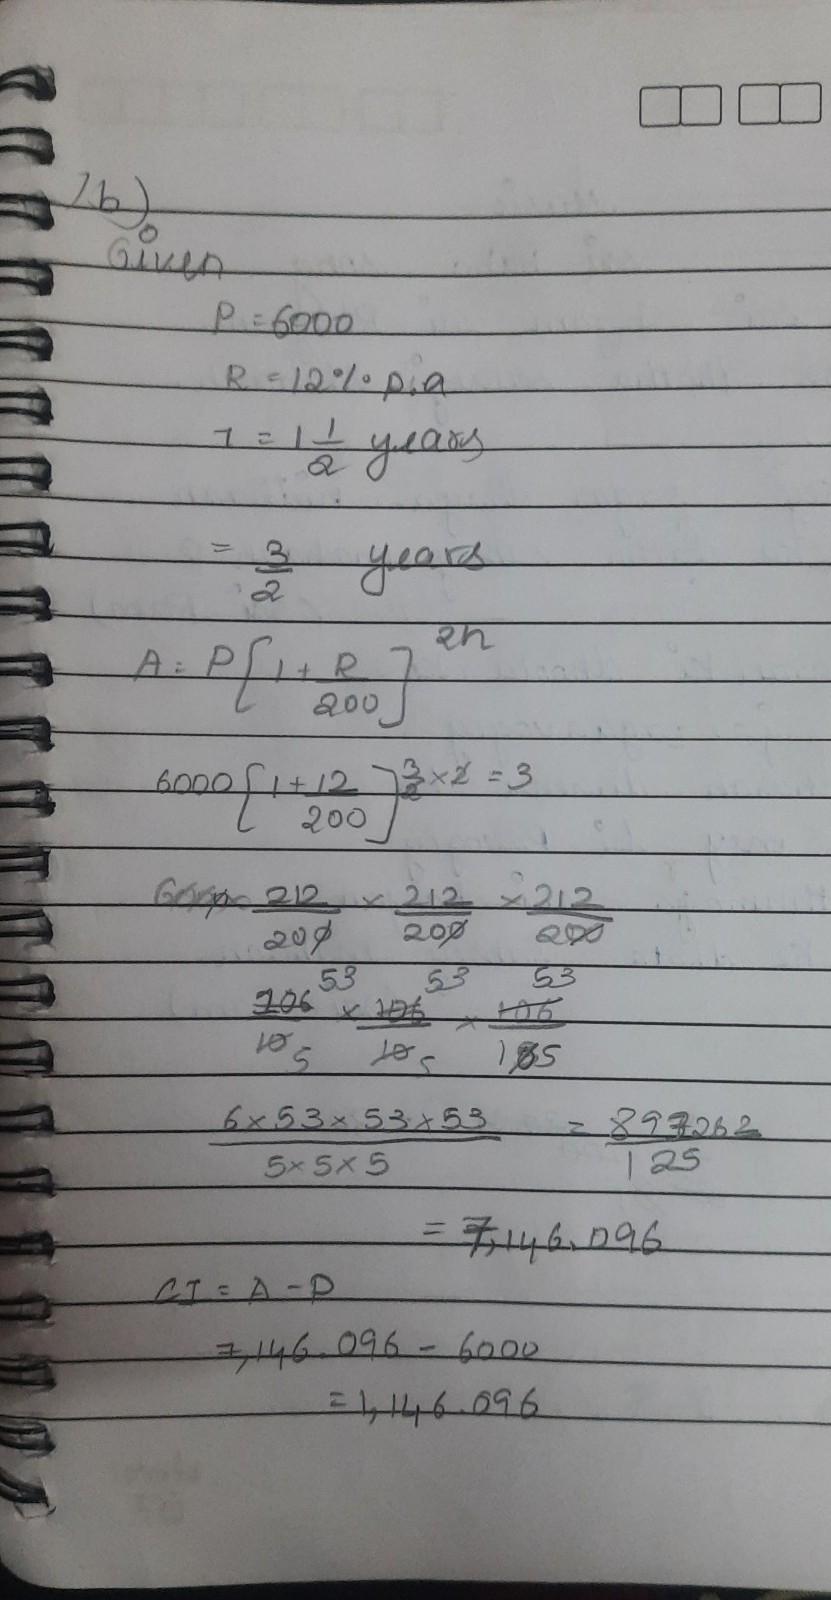 1b)
Given
P = 6000
R = 12% p.a
T = 1 1/2 years
= 3/2 years
A = P[1 + R/200]^2n
6000[1 + 12/200]^3/2 × 2 = 3
212/200 × 212/200 × 212/200
53 53 53
106/10 5 × 106/10 5 × 106/10 5
6 × 53 × 53 × 53 / 5 × 5 × 5 = 893262/125
= 7,146.096
CI = A - P
7,146.096 - 6000
= 1,146.096